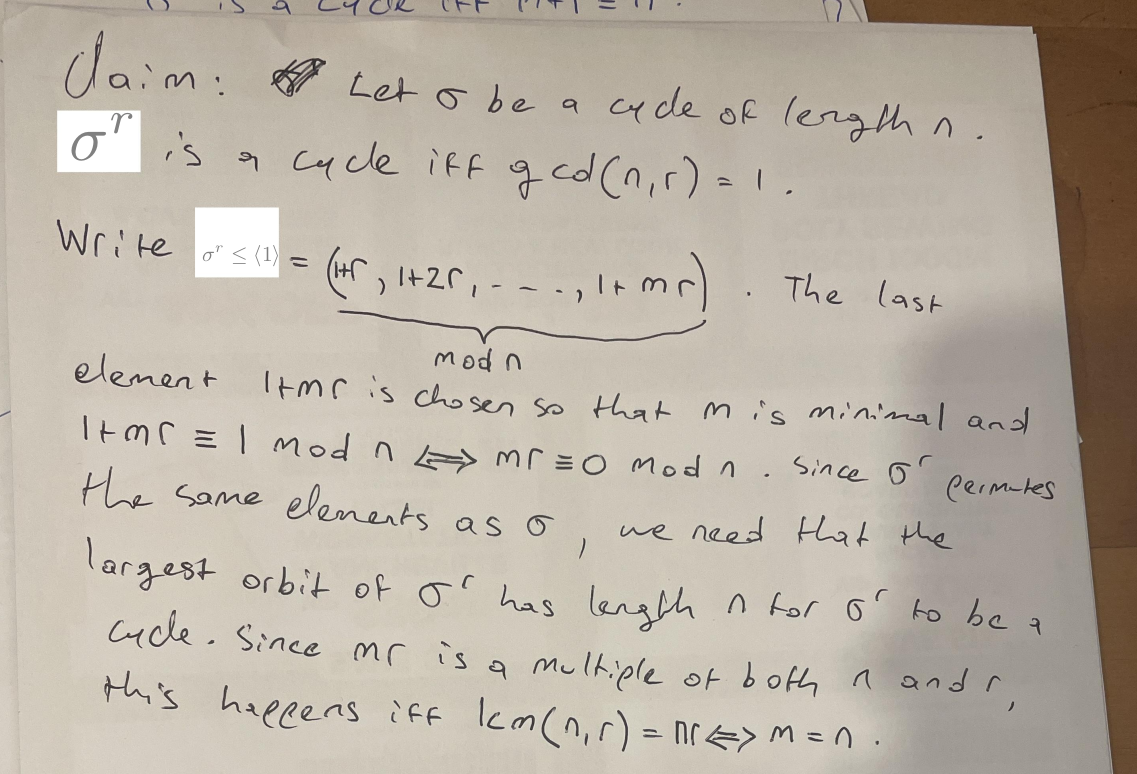 is a cycle iff
Claim: Let σ be a cycle of length n.
σ^r is a cycle iff gcd(n,r) = 1.
Write σ^r ≤ ⟨1⟩ = (1+r, 1+2r, - - - ., 1+mr). The last
mod n
element 1+mr is chosen so that m is minimal and
1+mr ≡ 1 mod n ⟺ mr ≡ 0 mod n. Since σ^r permutes
the same elements as σ, we need that the
largest orbit of σ^r has length n for σ^r to be a
cycle. Since mr is a multiple of both n and r,
this happens iff lcm(n,r) = nr ⟺ m = n.